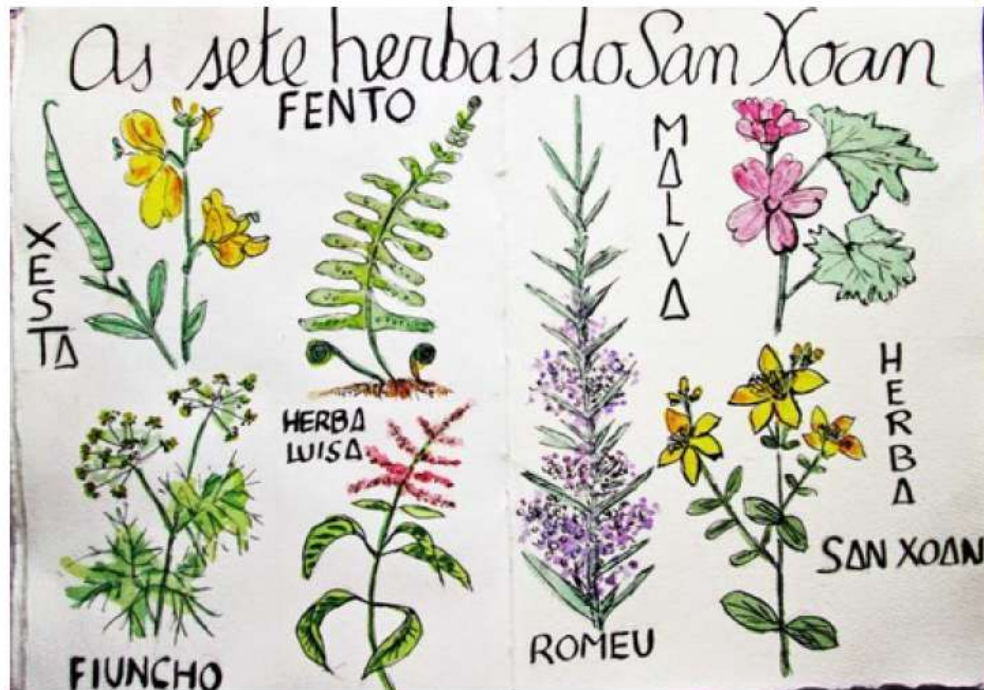 As sete herbas do San Xoan
XESTA
FENTO
MALVA
HERBA
SAN XOAN
HERBA
LUISA
FIUNCHO
ROMEU